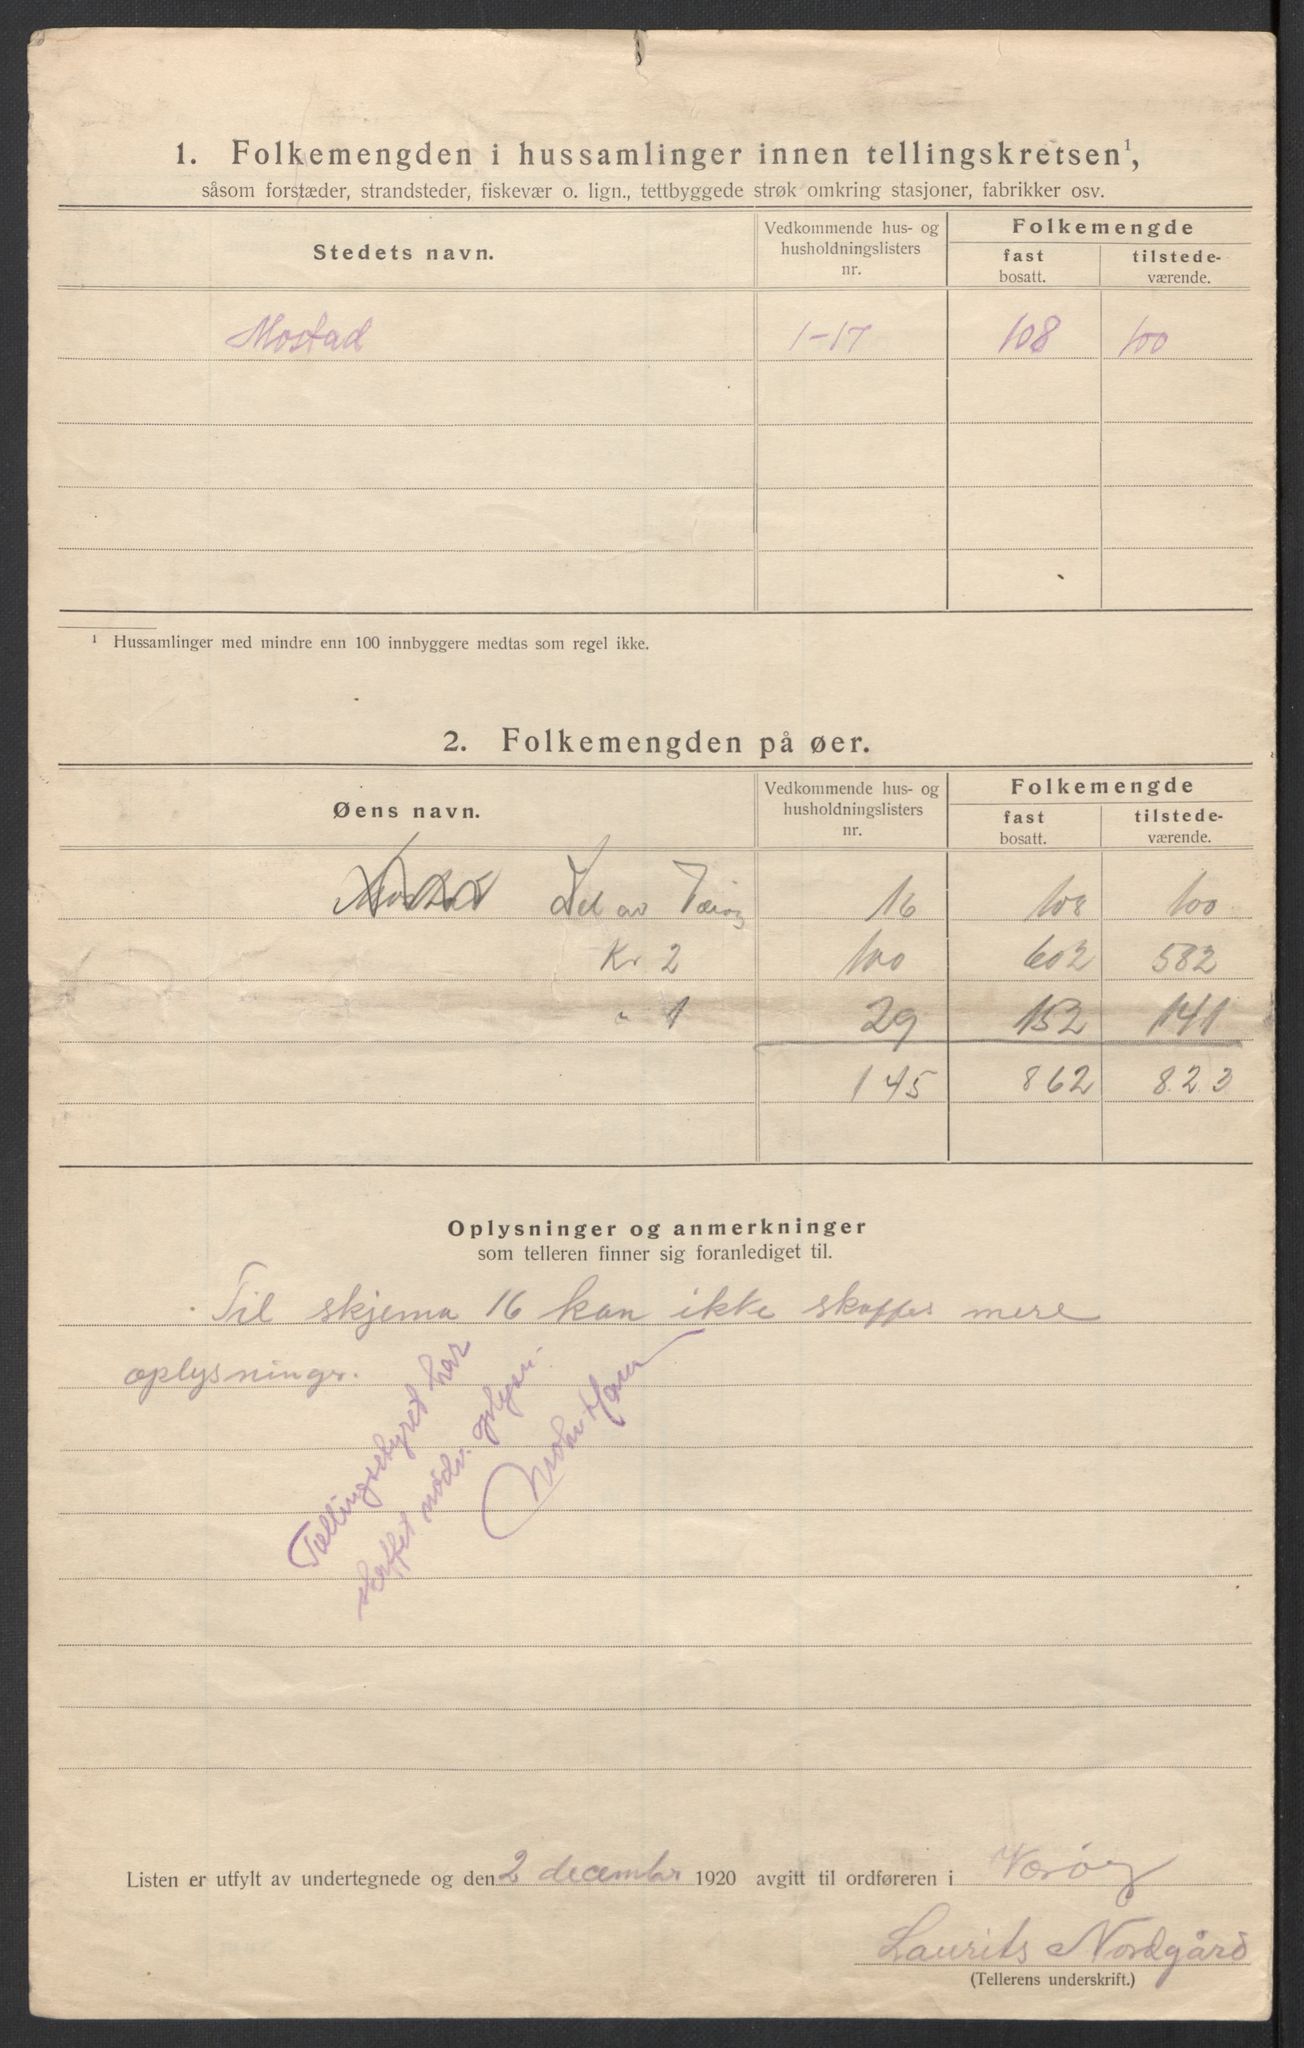 1. Folkemengden i hussamlinger innen tellingskretsen¹,
såsom forstæder, strandsteder, fiskevær o. lign., tettbyggede strøk omkring stasjoner, fabrikker osv.
Stedets navn. Vedkommende hus- og husholdningslisters nr. Folkemengde
fast bosatt. tilstede-værende.
Mostad 1-17 108 100
¹ Hussamlinger med mindre enn 100 innbyggere medtas som regel ikke.
2. Folkemengden på øer.
Øens navn. Vedkommende hus- og husholdningslisters nr. Folkemengde
fast bosatt. tilstede-værende.
Mostad Del av Værøy 16 108 100
Kr 2 100 602 582
" 1 29 152 141
145 862 823
Oplysninger og anmerkninger
som telleren finner sig foranlediget til.
Til skjema 16 kan ikke skaffes mere
oplysninger.
Tellingsstyret har
skaffet nødv. oplysn.
Listen er utfylt av undertegnede og den 2 december 1920 avgitt til ordføreren i Værøy
Laurits Nordgård
(Tellerens underskrift.)